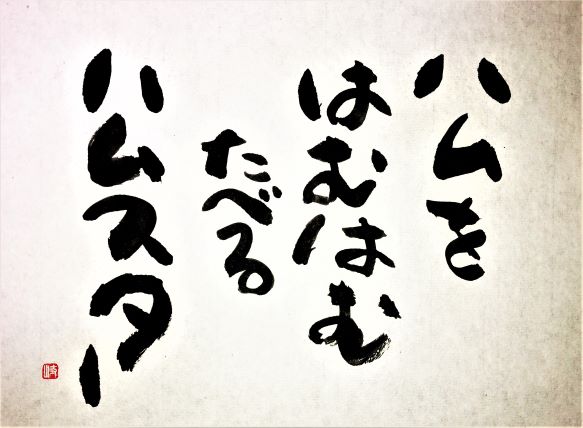 ハムを
はむはむ
たべる
ハムスター